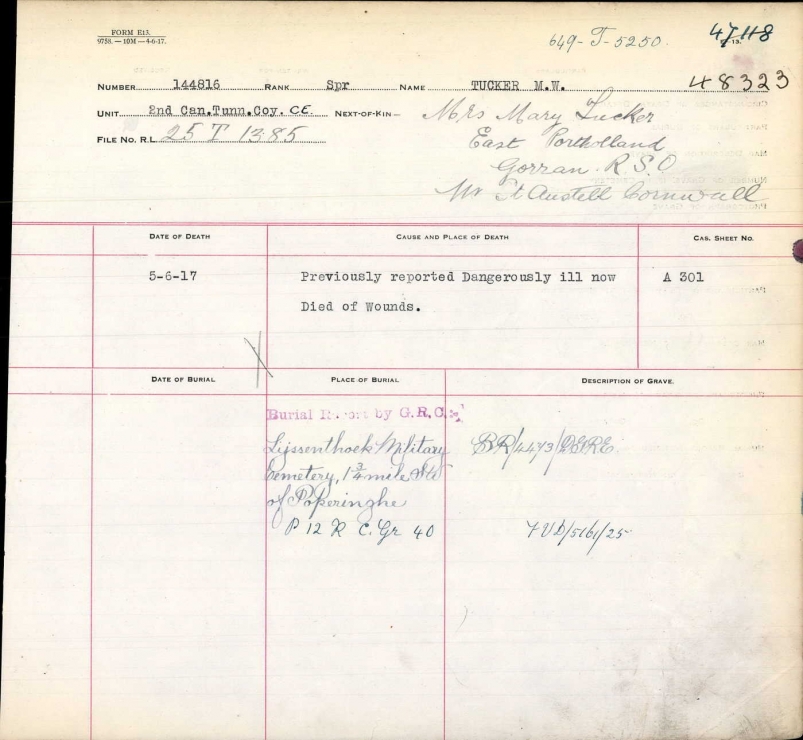 FORM E13.
9758.—10M—4-6-17.
649-T-5250. 47118
48323
NUMBER 144816 RANK Spr NAME TUCKER M.W.
UNIT 2nd Can.Tunn.Coy. CE NEXT-OF-KIN— Mrs Mary Tucker
FILE NO. R.L. 25 T 1385 East Portholland
Gorran. R.S.O
Nr St Austell Cornwall
DATE OF DEATH CAUSE AND PLACE OF DEATH CAS. SHEET NO.
5-6-17 Previously reported Dangerously ill now A 301
Died of Wounds.
DATE OF BURIAL PLACE OF BURIAL DESCRIPTION OF GRAVE.
Burial Report by G.R.C.
Lijssenthoek Military
Cemetery, 1 3/4 mile SW
of Poperinghe
P 12 R C. Gr 40